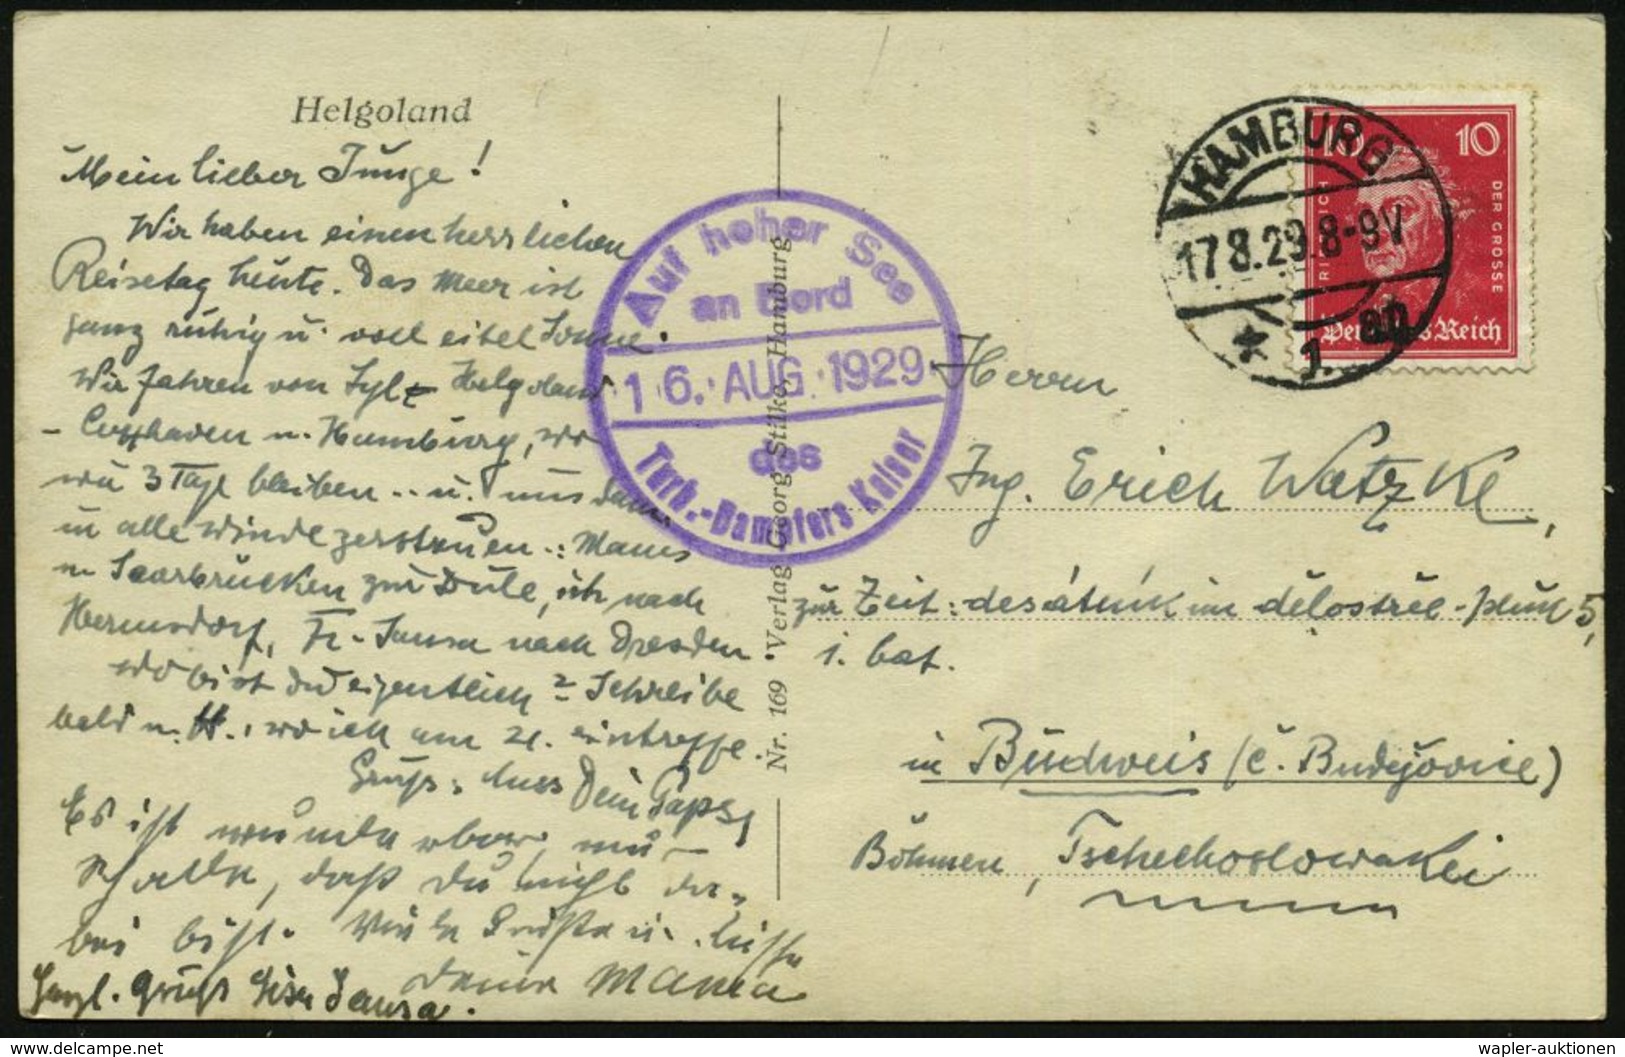 Helgoland
Mein lieber Junge!
Wir haben einen herrlichen
Reisetag heute. Das Meer ist
ganz ruhig u. voll eitel Sonne.
Wir fahren von Sylt - Helgoland
- Cuxhaven n. Hamburg, wo
wir 3 Tage bleiben .. u. uns dann
in alle Winde zerstreuen .: Mama
n. Saarbrücken zur Dule, ich nach
Hermsdorf, Fr. Jansa nach Dresden.
Wo bist du eigentlich? Schreibe
bald n. H., wo ich am 21. eintreffe.
Gruss, Kuss Dein Paps,
Es ist wunderbar,
schade, daß Du nicht da-
bei bist. Viele Grüße u. Küsse
Deine Mama
Herzl. Gruß Jansa.
Auf hoher See
an Bord
16. AUG. 1929
des
Turb.-Dampfers Kaiser
Nr. 169 Verlag Georg Stilke, Hamburg
HAMBURG
17.8.29.8-9V
* 1.
10 10
FRIEDRICH DER GROSSE
Deutsches Reich
Herrn
Ing. Erich Watzke,
zur Zeit: desátník im dělostřel. pluk 5,
1. bat.
in Budweis (Č. Budějovice)
Böhmen, Tschechoslowakei
delcampe.net
wapler-auktionen